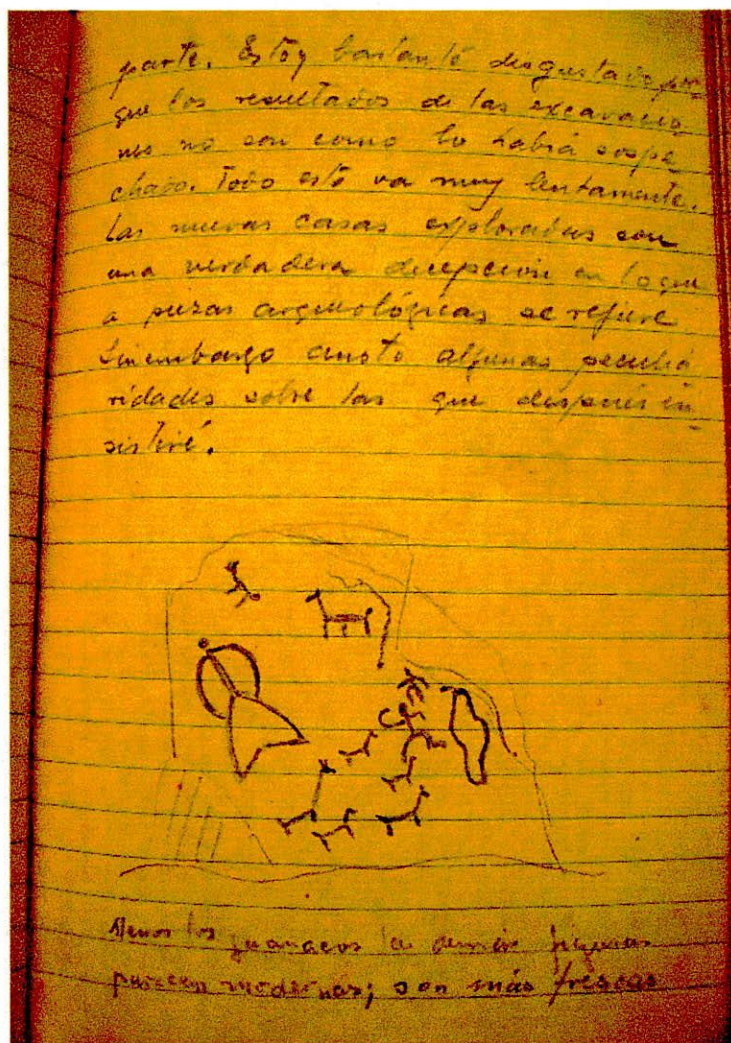 parte. Estoy bastante disgustado por-
que los resultados de las excavacio
nes no son como lo había sospe
chado. Todo esto va muy lentamente.
Las nuevas casas exploradas son
una verdadera decepción en lo que
a piezas arqueológicas se refiere
Sinembargo anoto algunas peculia
ridades sobre las que después in-
sistiré.
Menos los guanacos las demás figuras
parecen modernas; son más frescas